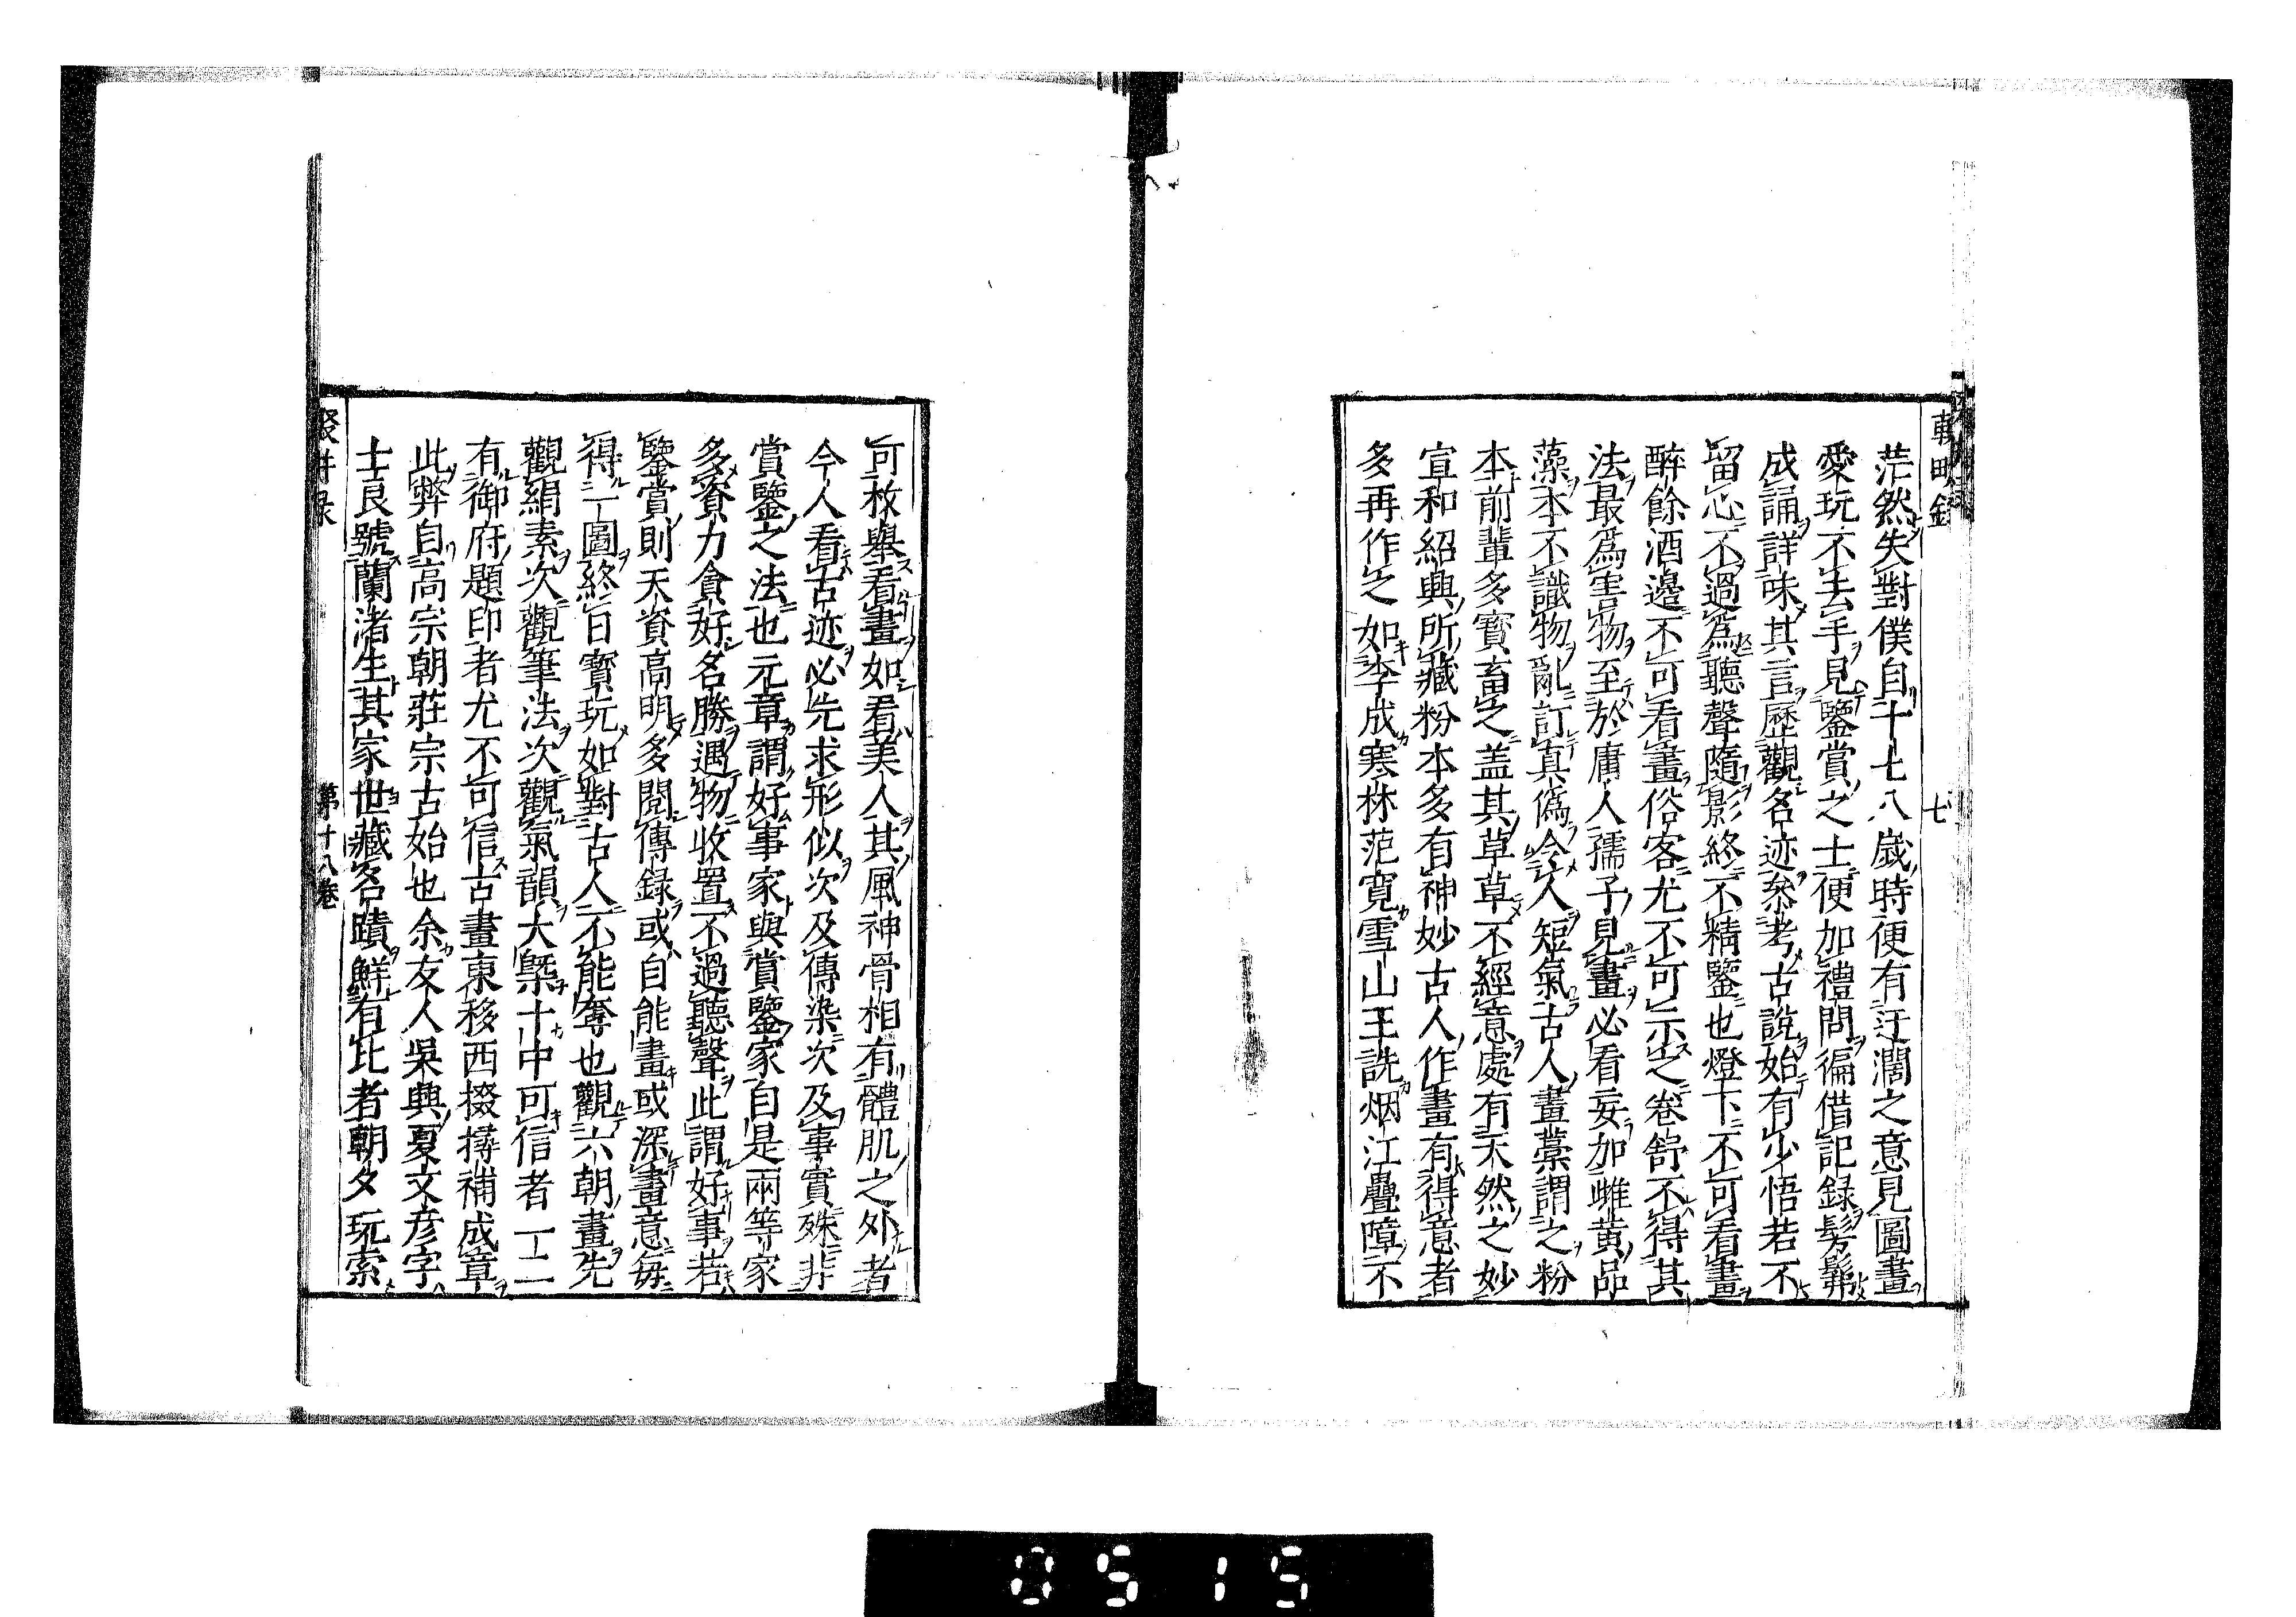 茫然失對僕自十七八歲時便有迂濶之意見圖畫
愛玩不去手見鑒賞之士便加禮問徧借記録髣髴
成誦詳味其言歷觀名迹叅考古說始有少悟若不
留心不過爲聽聲隨影終不精鑒也燈下不可看畫
醉餘酒邊不可看畫俗客尤不可示之卷舒不得其
法最爲害物至於庸人孺子見畫必看妄加雌黄品
藻本不識物亂訂真僞令人短氣古人畫藁謂之粉
本前輩多寳畜之盖其草草不經意處有天然之妙
宣和紹興所藏粉本多有神妙古人作畫有得意者
多再作之如李成寒林范寛雪山王詵烟江疊障不
可枚舉看畫如看美人其風神骨相有體肌之外者
今人看古迹必先求形似次及傳染次及事實殊非
賞鑒之法也元章謂好事家與賞鑒家自是兩等家
多資力貪好名勝遇物收置不過聽聲此謂好事若
鑒賞則天資高明多閱傳録或自能畫或深畫意每
得一圖終日寳玩如對古人不能奪也觀六朝畫先
觀絹素次觀筆法次觀氣韻大槩十中可信者一二
有御府題印者尤不可信古畫東移西掇搏補成章
此弊自高宗朝莊宗古始也余友人吳興夏文彦字
士良號蘭渚生其家世藏名蹟鮮有比者朝夕玩索
輟畊録
七
第十八卷
0515